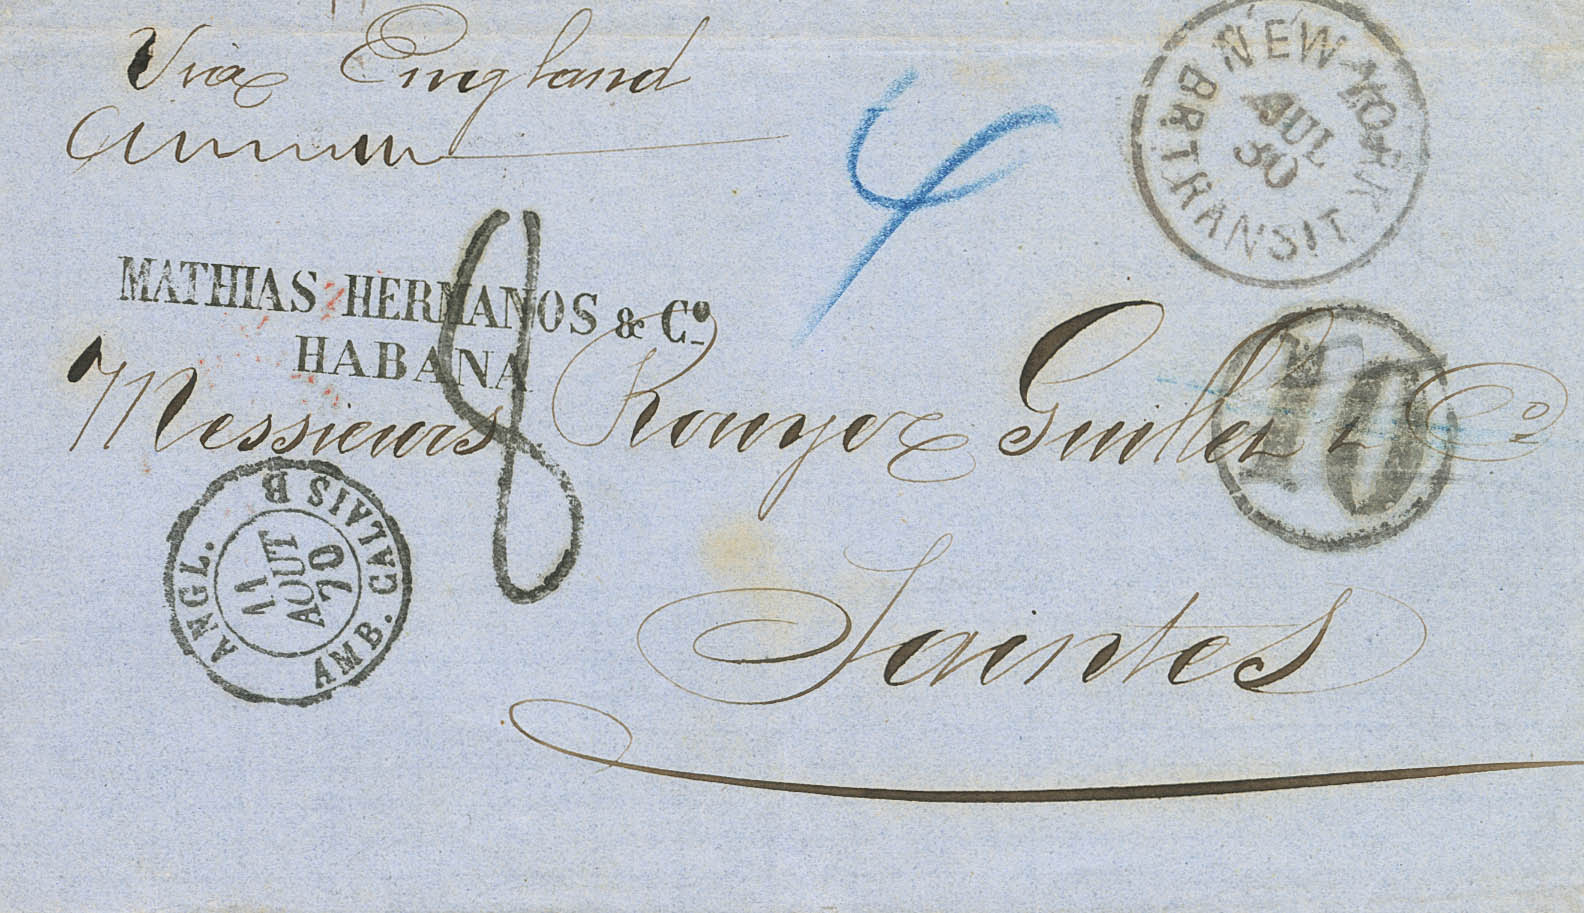 Via England
NEW-YORK
JUL
30
BR TRANSIT
4
MATHIAS HERMANOS & Cº
HABANA
8
Messieurs Rouyer Guillet & Cº
10
Saintes
ANGL.
AMB. CALAIS B
11
AOUT
70